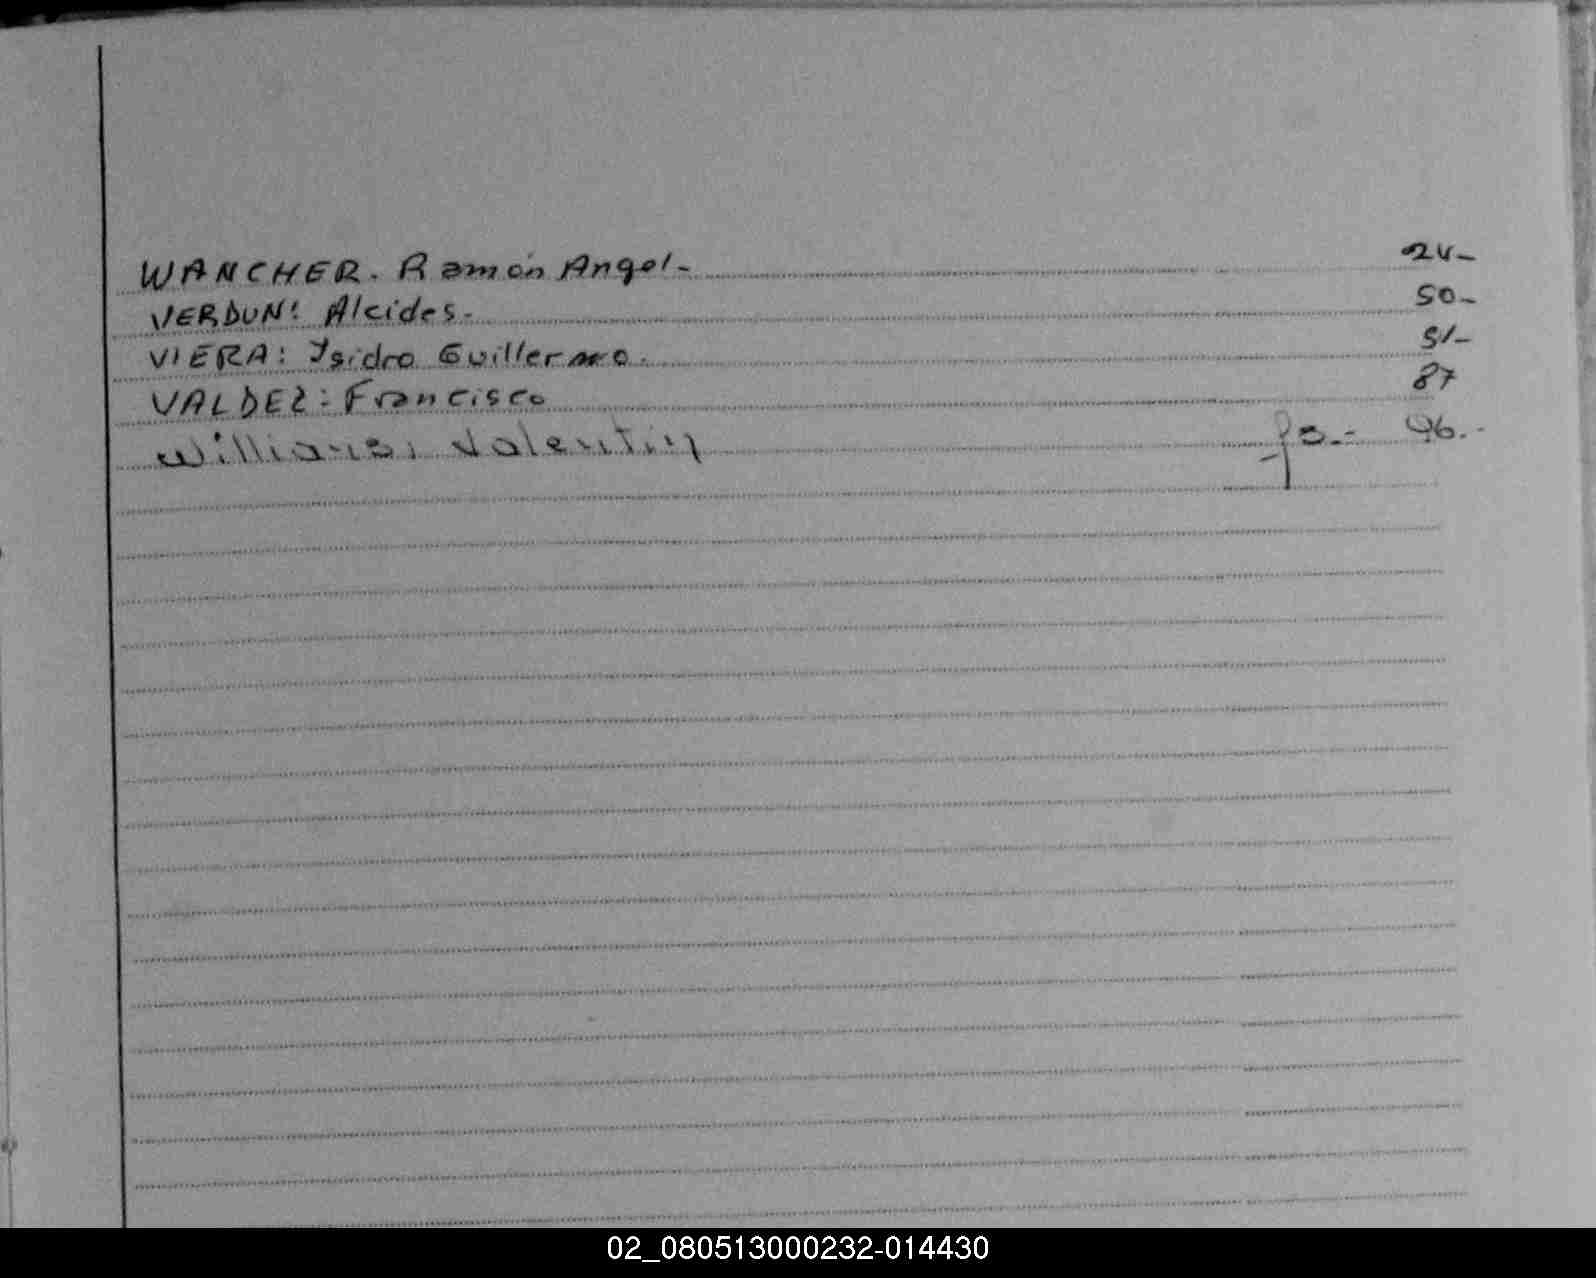 WANCHER. Ramón Angel- 24-
VERDUN: Alcides.- 50-
VIERA: Ysidro Guillermo. 51-
VALDEZ: Francisco 87
Willians, Valentin fs.- 96.-
02_080513000232-014430